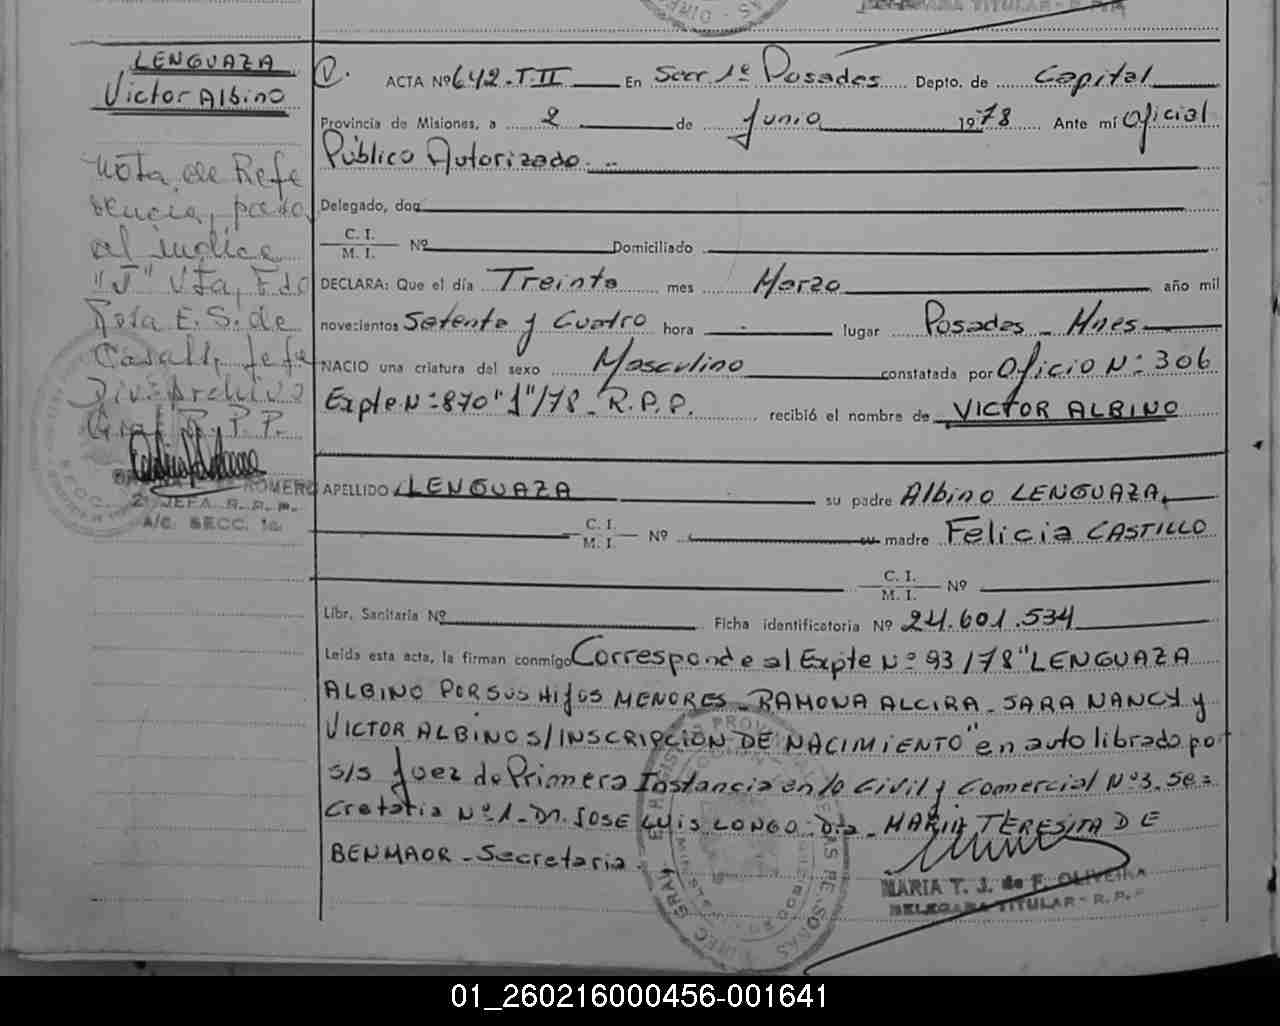 LENGUAZA
Victor Albino
Nota de Refe
rencia, paso
al indice
"J" Vta, Fdo
Rosa E. S. de
Casalt, Jefe
Div. Archivo
Gral R. P. P.
ROMERO
2º JEFA R. P. P.
A/C. SECC. 1a.
V. ACTA Nº 642-T.II En Secc. 1ª Posadas Depto. de Capital
Provincia de Misiones, a 2 de Junio 1978 Ante mí Oficial
Público Autorizado
Delegado, don
C. I.
M. I. Nº Domiciliado
DECLARA: Que el día Treinta mes Marzo año mil
novecientos Setenta y Cuatro hora lugar Posadas - Mnes
NACIO una criatura del sexo Masculino constatada por Oficio Nº 306
Expte Nº 870 "J"/78 - R.P.P. recibió el nombre de VICTOR ALBINO
APELLIDO LENGUAZA su padre Albino LENGUAZA
C. I.
M. I. Nº su madre Felicia CASTILLO
C. I.
M. I. Nº
Libr. Sanitaria Nº Ficha identificatoria Nº 24.601.534
Leída esta acta, la firman conmigo Corresponde al Expte Nº 93/78 "LENGUAZA
ALBINO POR SUS HIJOS MENORES - RAMONA ALCIRA - SARA NANCY y
VICTOR ALBINO S/INSCRIPCIÓN DE NACIMIENTO" en auto librado por
s/s Juez de Primera Instancia en lo Civil y Comercial Nº 3. Se=
cretaria Nº 1 - Dr. JOSE LUIS LONGO - Dra - MARIA TERESITA DE
BENMAOR - Secretaria
MARIA T. J. de F. OLIVEIRA
DELEGADA TITULAR - R. P. P.
01_260216000456-001641